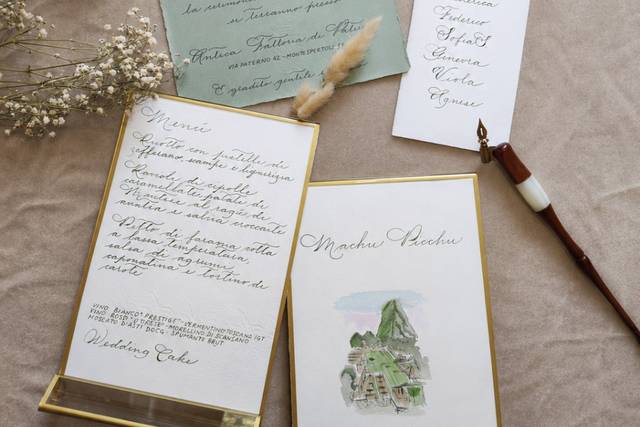 la cerimonia
si terranno presso
Antica Fattoria di
VIA PATERNO 42 - MONTESPERTOLI
È gradito gentile
Federica
Federico
SofiaS
Ginevra
Viola
Agnese
Menù
Risotto con pistilli di
zafferano, scampi e liquirizia
Ravioli di cipolle
caramellate, patate di
al ragù di
anatra e salvia croccante
Petto di faraona cotta
a bassa temperatura,
salsa di agrumi,
caponatina e tortino di
carote
VINO BIANCO "PRESTIGE" - VERMENTINO TOSCANO IGT
VINO ROSSO - MORELLINO DI SCANSANO
MOSCATO D'ASTI DOCG - SPUMANTE BRUT
Wedding Cake
Machu Picchu